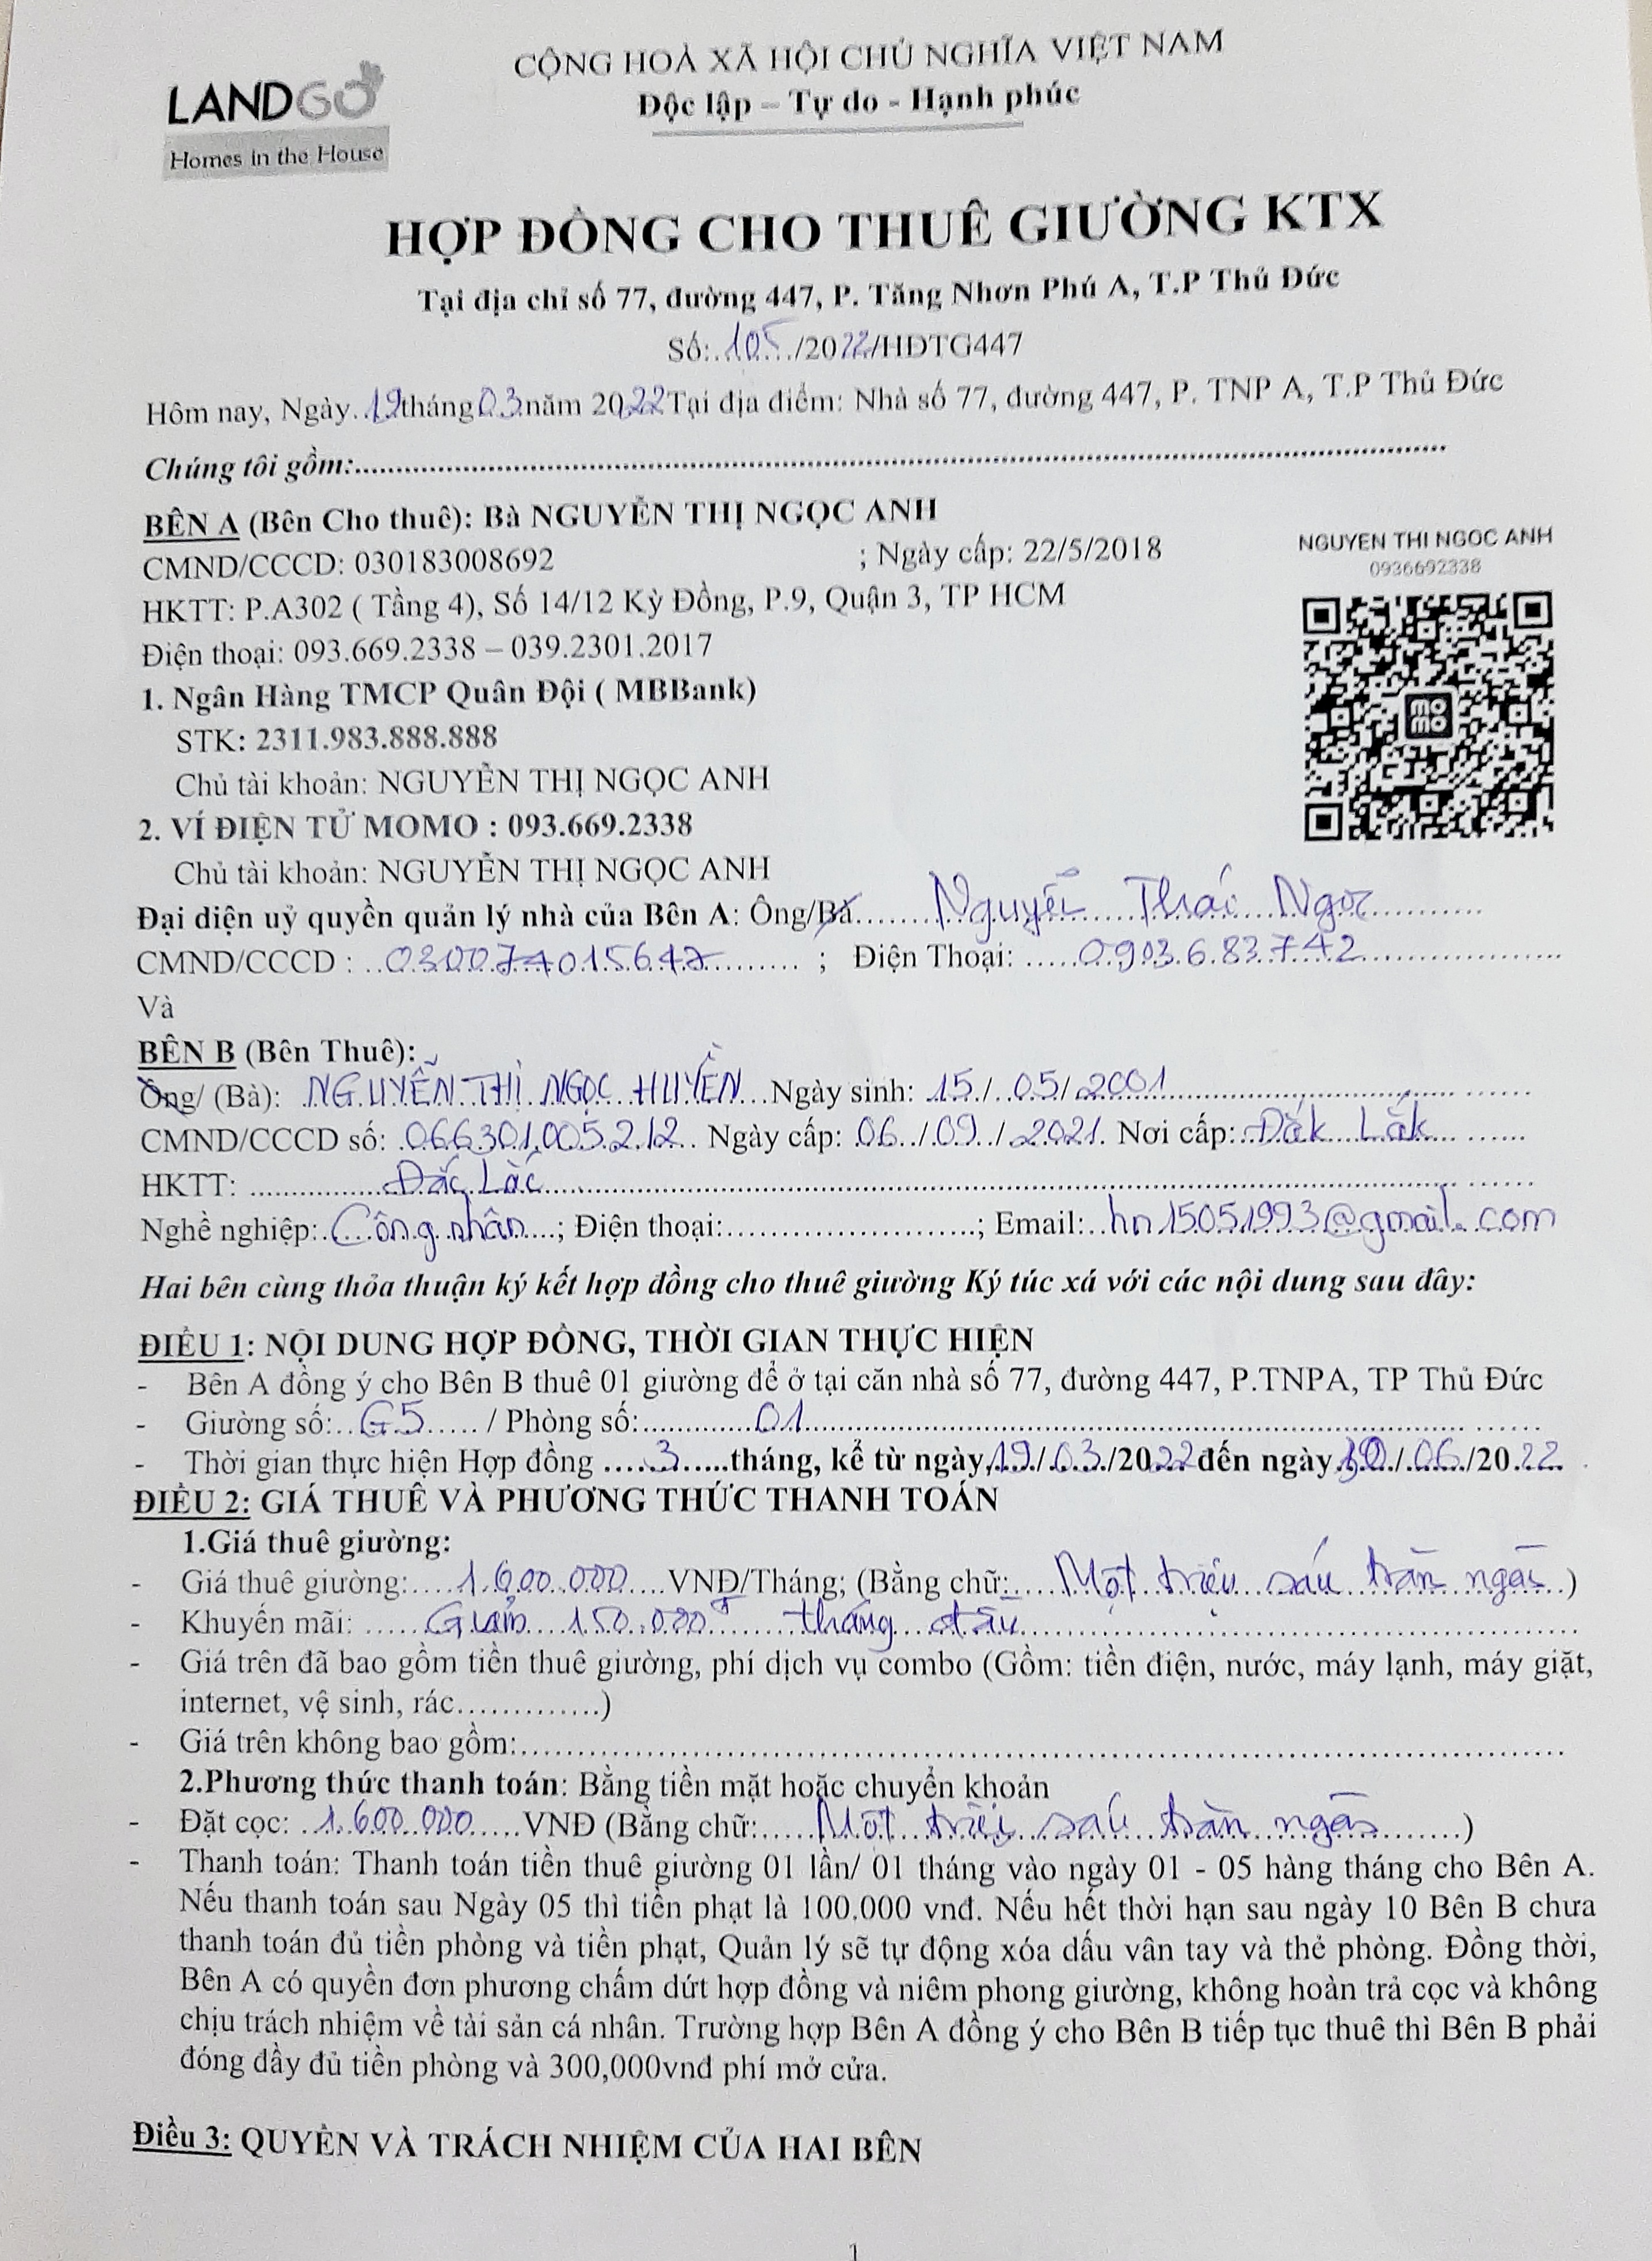 LANDGO
Homes in the House
CỘNG HOÀ XÃ HỘI CHỦ NGHĨA VIỆT NAM
Độc lập – Tự do - Hạnh phúc
HỢP ĐỒNG CHO THUÊ GIƯỜNG KTX
Tại địa chỉ số 77, đường 447, P. Tăng Nhơn Phú A, T.P Thủ Đức
Số:.105.../2022/HĐTG447
Hôm nay, Ngày.19tháng03năm 2022Tại địa điểm: Nhà số 77, đường 447, P. TNP A, T.P Thủ Đức
Chúng tôi gồm:
BÊN A (Bên Cho thuê): Bà NGUYỄN THỊ NGỌC ANH
CMND/CCCD: 030183008692 ; Ngày cấp: 22/5/2018
HKTT: P.A302 ( Tầng 4), Số 14/12 Kỳ Đồng, P.9, Quận 3, TP HCM
Điện thoại: 093.669.2338 – 039.2301.2017
NGUYEN THI NGOC ANH
0936692338
1. Ngân Hàng TMCP Quân Đội ( MBBank)
STK: 2311.983.888.888
Chủ tài khoản: NGUYỄN THỊ NGỌC ANH
2. VÍ ĐIỆN TỬ MOMO : 093.669.2338
Chủ tài khoản: NGUYỄN THỊ NGỌC ANH
Đại diện uỷ quyền quản lý nhà của Bên A: Ông/Bà Nguyễn Thái Ngọc
CMND/CCCD : 030074015647 ; Điện Thoại: 0903.683.742
Và
BÊN B (Bên Thuê):
Ông/ (Bà): NGUYỄN THỊ NGỌC HUYỀN Ngày sinh: 15/ 05/ 2001
CMND/CCCD số: 066301005212 Ngày cấp: 06/09/2021. Nơi cấp: Đắk Lắk
HKTT: Đắc Lắc
Nghề nghiệp: Công nhân; Điện thoại:; Email: hn15051993@gmail.com
Hai bên cùng thỏa thuận ký kết hợp đồng cho thuê giường Ký túc xá với các nội dung sau đây:
ĐIỀU 1: NỘI DUNG HỢP ĐỒNG, THỜI GIAN THỰC HIỆN
- Bên A đồng ý cho Bên B thuê 01 giường để ở tại căn nhà số 77, đường 447, P.TNPA, TP Thủ Đức
- Giường số: G5 / Phòng số: 01
- Thời gian thực hiện Hợp đồng 3 tháng, kể từ ngày 19/03/2022 đến ngày 30/06/2022
ĐIỀU 2: GIÁ THUÊ VÀ PHƯƠNG THỨC THANH TOÁN
1.Giá thuê giường:
- Giá thuê giường: 1.600.000 VNĐ/Tháng; (Bằng chữ: Một triệu sáu trăm ngàn)
- Khuyến mãi: Giảm 150.000đ tháng đầu
- Giá trên đã bao gồm tiền thuê giường, phí dịch vụ combo (Gồm: tiền điện, nước, máy lạnh, máy giặt,
internet, vệ sinh, rác.............)
- Giá trên không bao gồm:
2.Phương thức thanh toán: Bằng tiền mặt hoặc chuyển khoản
- Đặt cọc: 1.600.000 VNĐ (Bằng chữ: Một triệu sáu trăm ngàn)
- Thanh toán: Thanh toán tiền thuê giường 01 lần/ 01 tháng vào ngày 01 - 05 hàng tháng cho Bên A.
Nếu thanh toán sau Ngày 05 thì tiền phạt là 100.000 vnđ. Nếu hết thời hạn sau ngày 10 Bên B chưa
thanh toán đủ tiền phòng và tiền phạt, Quản lý sẽ tự động xóa dấu vân tay và thẻ phòng. Đồng thời,
Bên A có quyền đơn phương chấm dứt hợp đồng và niêm phong giường, không hoàn trả cọc và không
chịu trách nhiệm về tài sản cá nhân. Trường hợp Bên A đồng ý cho Bên B tiếp tục thuê thì Bên B phải
đóng đầy đủ tiền phòng và 300,000vnđ phí mở cửa.
Điều 3: QUYỀN VÀ TRÁCH NHIỆM CỦA HAI BÊN
1